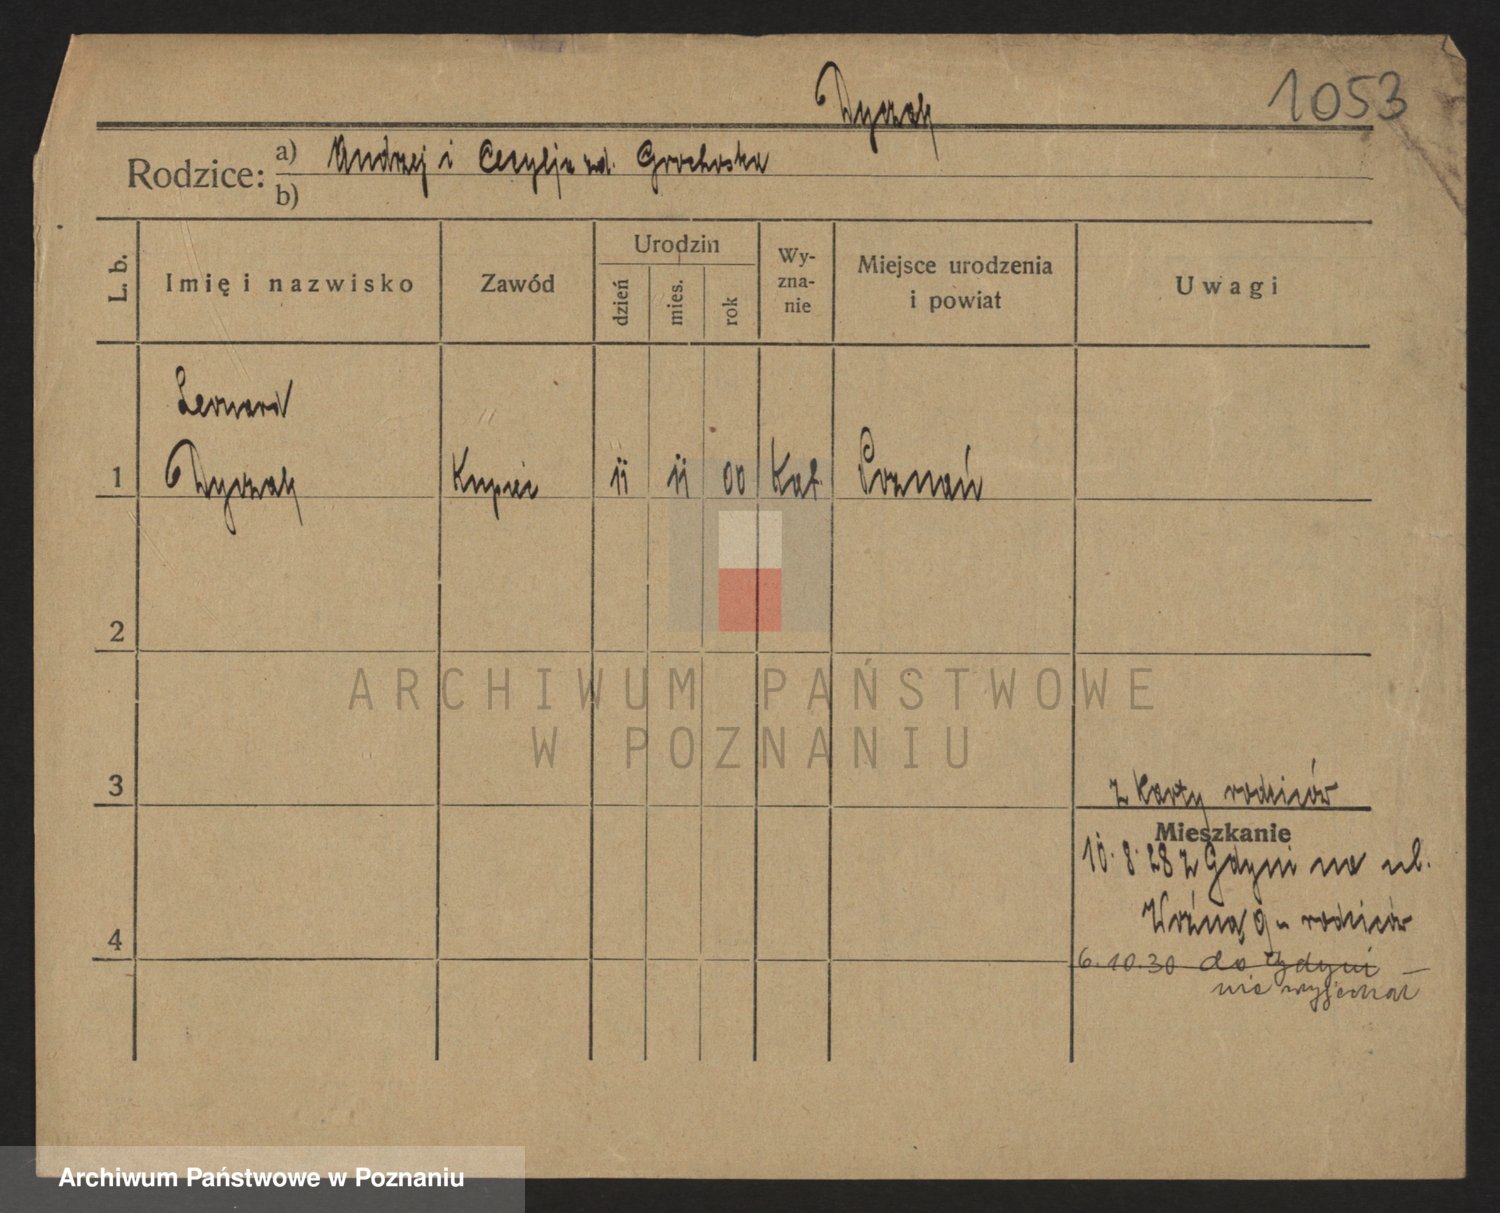 Dyzak
1053
Rodzice: a) Andrzej i Cecylja zd. Grochoska
b)
L. b.
Imię i nazwisko
Zawód
Urodzin
dzień
mies.
rok
Wy-
zna-
nie
Miejsce urodzenia
i powiat
Uwagi
Leonard
1 Kupiec 11 11 00 Kat. Poznań
2
ARCHIWUM PAŃSTWOWE
W POZNANIU
3
z karty rodziców
Mieszkanie
10.8.28 z Gdyni na ul.
Woźną 9 u rodziców
4
6.10.30 do Gdyni –
nie wyjechał
Archiwum Państwowe w Poznaniu